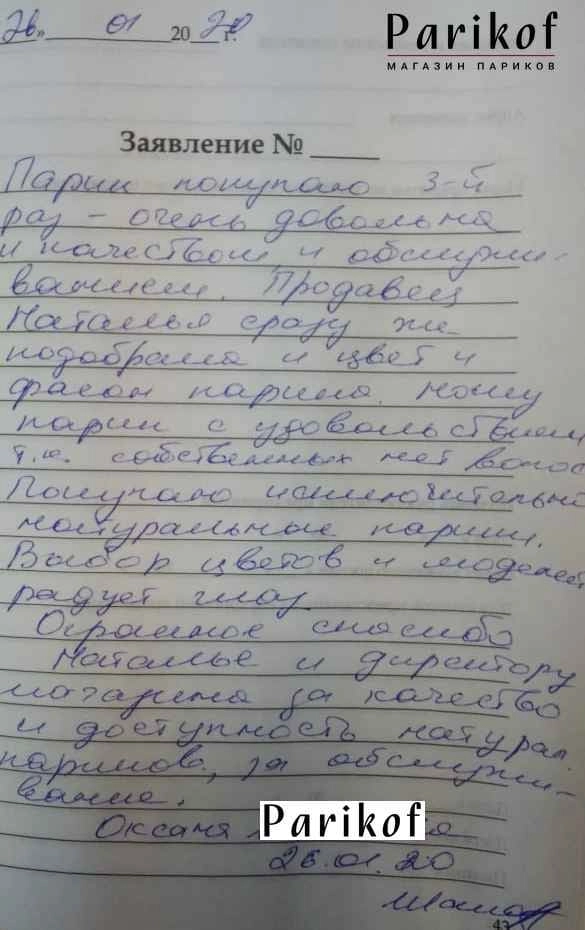 Parikof
МАГАЗИН ПАРИКОВ
26» 01 2020 г.
Заявление № ____
Парик покупаю 3-й
раз – очень довольна
и качеством и обслужи-
ванием. Продавец
Наталья сразу же
подобрала и цвет и
фасон парика. Ношу
парик с удовольствием
т.к. собственных нет волос
Покупаю исключительно
натуральные парики.
Выбор цветов и моделей
радует глаз
Огромное спасибо
Наталье и директору
магазина за качество
и доступность натурал.
париков, за обслужи-
вание.
Оксана Parikof
26.01.20
43